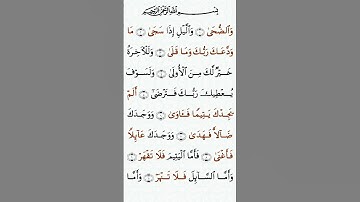 بِسْمِ ٱللَّهِ ٱلرَّحْمَٰنِ ٱلرَّحِيمِ
وَٱلضُّحَىٰ ۝١ وَٱلَّيْلِ إِذَا سَجَىٰ ۝٢ مَا
وَدَّعَكَ رَبُّكَ وَمَا قَلَىٰ ۝٣ وَلَلْآخِرَةُ
خَيْرٌ لَّكَ مِنَ ٱلْأُولَىٰ ۝٤ وَلَسَوْفَ
يُعْطِيكَ رَبُّكَ فَتَرْضَىٰٓ ۝٥ أَلَمْ
يَجِدْكَ يَتِيمًا فَـَٔاوَىٰ ۝٦ وَوَجَدَكَ
ضَآلًّا فَهَدَىٰ ۝٧ وَوَجَدَكَ عَآئِلًا
فَأَغْنَىٰ ۝٨ فَأَمَّا ٱلْيَتِيمَ فَلَا تَقْهَرْ ۝٩
وَأَمَّا ٱلسَّآئِلَ فَلَا تَنْهَرْ ۝١٠ وَأَمَّا